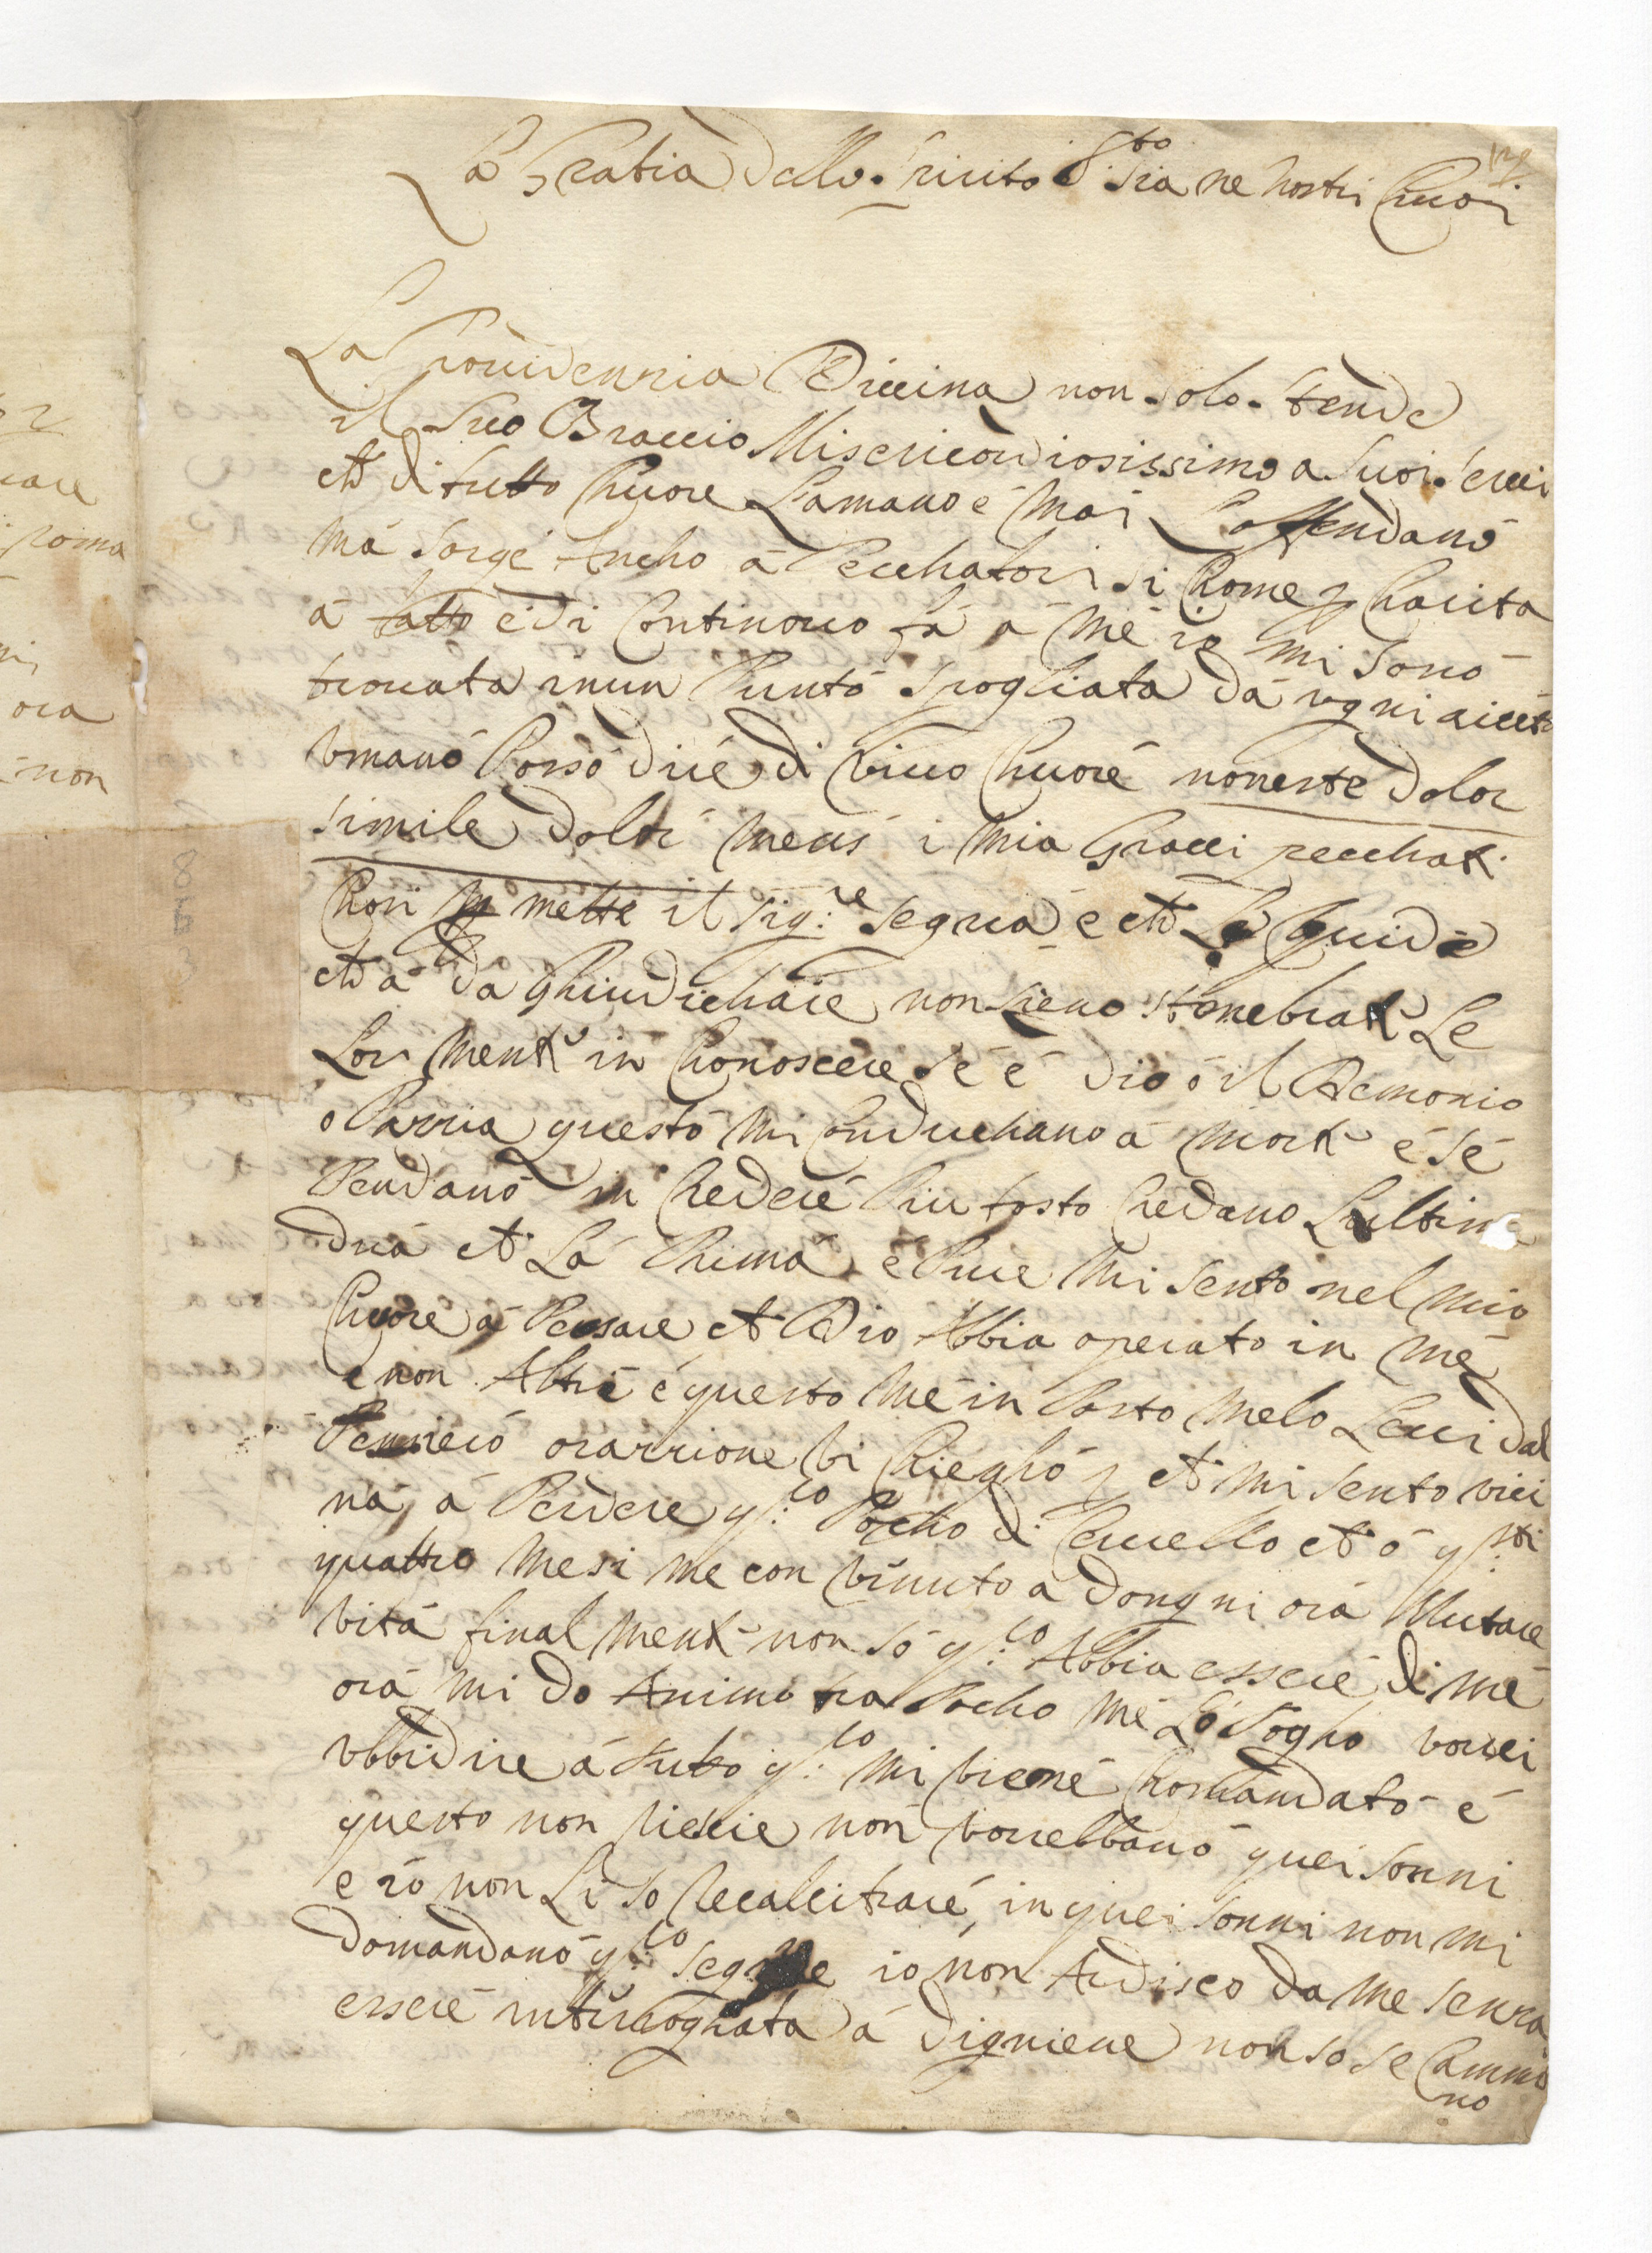 La Gratia dello Spirito S.to sia ne nostri Chuori
La Providenzia Divina non solo stende
il suo Braccio Misericordiosissimo a suoi servi
ch di tutto Chuore Lamano é mai Loffendanó
má sorge Ancho á Pecchatori si Chome p Charita
á fatto é di Continovo fá á mé io mi sonó
trovata inun Puntó spogliata dá ogni aiuto
umanó Possó dire di vivo Chuoré nonesté dolor
simile dolor meus i mia Gravi pecchati
Chon mette il Sig:re segua é ch Le Guida
ch á da Ghiudichare non sieno stenebrate Le
Lor mente in Chonoscere sé é Dio ó il Demonio
o Pazzia questó mi Conduchano á morte é sé
Pendanó in Crederé Piu tosto Credano Lultima
dua ch Lá Primá é Pure mi sento nel mio
Chuoré á Pensare ch Dio Abbia operato in mé
e non Altri é questo mé in Posto melo Levi dal
Pensieró orazzione vi Prieghó p ch mi sento vici
ná á Perdere q:lo Pocho di Cervello ch ó q:sti
quattro mesi me con vinuto á dongni orá Mutare
vitá final mente non só q:lo Abbia esseré di mé
orá mi do Animo tra Pocho mé Ló Toglio vorrei
ubbidire á tutto q:lo mi viené Chomandató é
questo non
non vorrebbanó quei sonni
e io non Li so Recalcitraré, in quei sonni non mi
domandanó q:lo segue io non Ardisco da me senza
esseré interroghata á digniene non so se Cammi
no
8
3
2
roma
ora
non